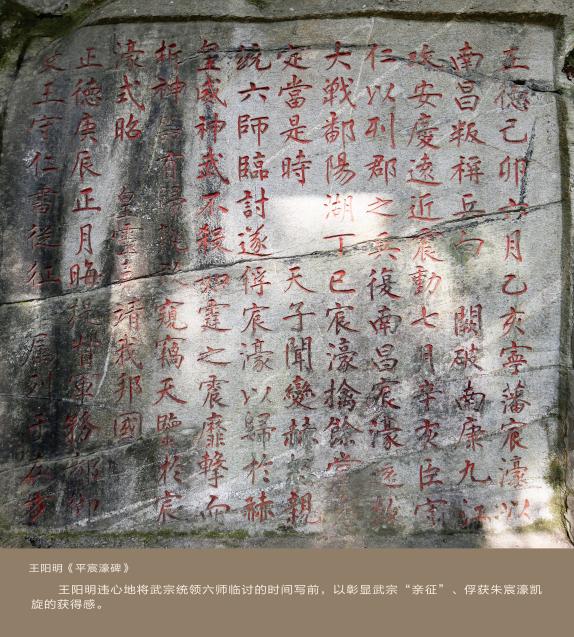 正德己卯六月乙亥寧藩宸濠以
南昌叛稱兵向 闕破南康九江
攻安慶遠近震動七月辛亥臣守
仁以列郡之兵復南昌宸濠還救
大戰鄱陽湖丁巳宸濠擒餘黨
定當是時 天子聞變赫怒親
統六師臨討遂俘宸濠以歸於赫
皇威神武不殺如霆之震靡擊而
折神有歸孰敢窺竊天鑒於宸
濠式昭 皇靈靖我邦國
正德庚辰正月晦提督軍務都御
史王守仁書從征 屬列于左方
王阳明《平宸濠碑》
王阳明违心地将武宗统领六师临讨的时间写前，以彰显武宗“亲征”、俘获朱宸濠凯
旋的获得感。